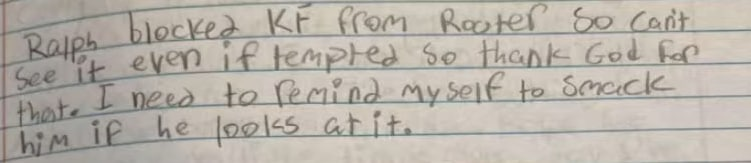 Ralph blocked KF from Rooter so can't
see it even if tempted so thank God for
that. I need to remind myself to smack
him if he looks at it.